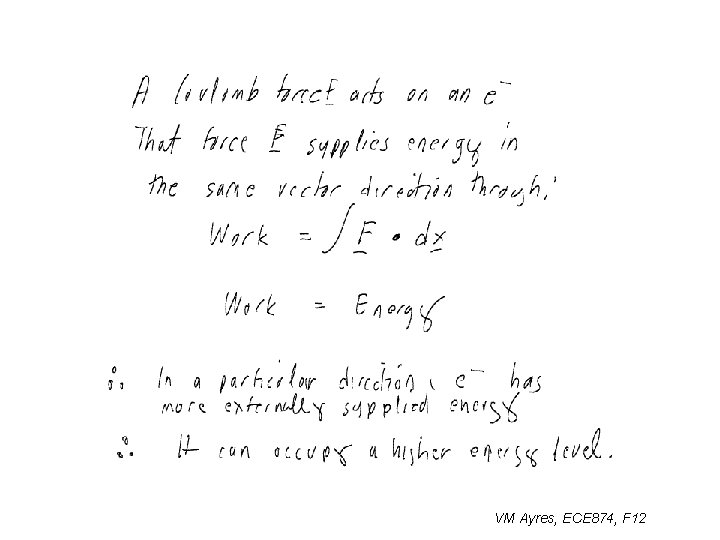 A Coulomb force F acts on an e⁻
That force F supplies energy in
the same vector direction through:
Work = ∫ F • dx
Work = Energy
∴ In a particular direction, e⁻ has
more externally supplied energy
∴ It can occupy a higher energy level.
VM Ayres, ECE874, F12